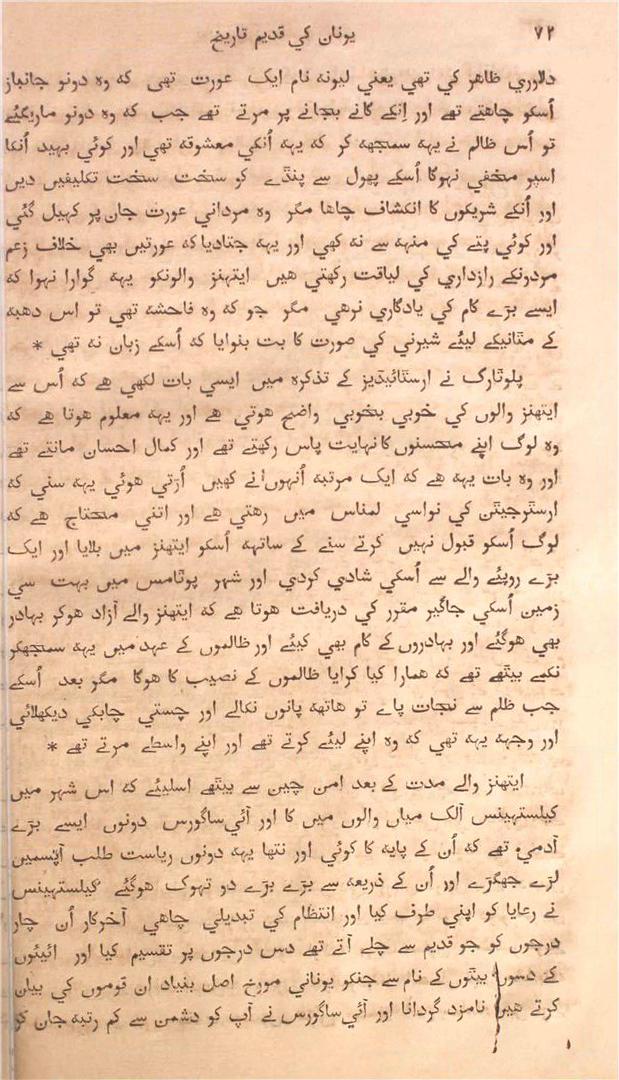 ۷۲ یونان کی قدیم تاریخ
دلاوری ظاهر کی تهی یعنی لیونه نام ایک عورت تهی که وه دونو جانباز
اُسکو چاهتے تهے اور اِنکے گانے بجانے پر مرتے تهے جب که وه دونو ماریگئے
تو اُس ظالم نے یهه سمجهه کر که یهه اُنکی معشوقه تهی اور کوئی بهید اُنکا
اسپر مخفی نهوگا اُسکے پهول سے پنڈے کو سخت سخت تکلیفیں دیں
اور اُنکے شریکوں کا انکشاف چاها مگر وه مردانی عورت جان پر کهیل گئی
اور کوئی پتے کی منهه سے نه کهی اور یهه جتادیا که عورتیں بهی خلاف زعم
مردونکے رازداری کی لیاقت رکهتی هیں ایتهنز والونکو یهه گوارا نهوا که
ایسے بڑے کام کی یادگاری نرهی مگر جو که وه فاحشه تهی تو اس دهبه
کے مٹانیکے لیئے شیرنی کی صورت کا بت بنوایا که اُسکے زبان نه تهی *
پلوٹارگ نے ارسٹائیڈیز کے تذکره میں ایسی بات لکهی هے که اُس سے
ایتهنز والوں کی خوبی بخوبی واضح هوتی هے اور یهه معلوم هوتا هے که
وه لوگ اپنے محسنوں کا نهایت پاس رکهتے تهے اور کمال احسان مانتے تهے
اور وه بات یهه هے که ایک مرتبه اُنهوں نے کهیں اُڑتی هوئی یهه سنی که
ارسٹرجیٹن کی نواسی لمناس میں رهتی هے اور اتنی محتاج هے که
لوگ اُسکو قبول نهیں کرتے سنے کے ساتهه اُسکو ایتهنز میں بلایا اور ایک
بڑے روپئے والے سے اُسکی شادی کردی اور شهر پوٹامس میں بهت سی
زمین اُسکی جاگیر مقرر کی دریافت هوتا هے که ایتهنز والے آزاد هوکر بهادر
بهی هوگئے اور بهادروں کے کام بهی کیئے اور ظالموں کے عهد میں یهه سمجهکر
نکمے بیٹهے تهے که همارا کیا کرایا ظالموں کے نصیب کا هوگا مگر بعد اُسکے
جب ظلم سے نجات پاے تو هاتهه پانوں نکالے اور چستی چابکی دیکهلائی
اور وجهه یهه تهی که وه اپنے لیئے کرتے تهے اور اپنے واسطے مرتے تهے *
ایتهنز والے مدت کے بعد امن چین سے بیٹهے اسلیئے که اس شهر میں
کیلستهینس آلک میاں والوں میں کا اور آئی ساگورس دونوں ایسے بڑے
آدمی تهے که اُن کے پایه کا کوئی اور نتها یهه دونوں ریاست طلب آپسمیں
لڑے جهگڑے اور اُن کے ذریعه سے بڑے بڑے دو تهوک هوگئے کیلستهینس
نے رعایا کو اپنی طرف کیا اور انتظام کی تبدیلی چاهی آخرکار اُن چار
درجوں کو جو قدیم سے چلے آتے تهے دس درجوں پر تقسیم کیا اور ائیئوں
کے دسوں بیٹوں کے نام سے جنکو یونانی مورخ اصل بنیاد ان قوموں کی بیان
کرتے هیں نامزد گردانا اور آئی ساگورس نے آپ کو دشمن سے کم رتبه جان کر